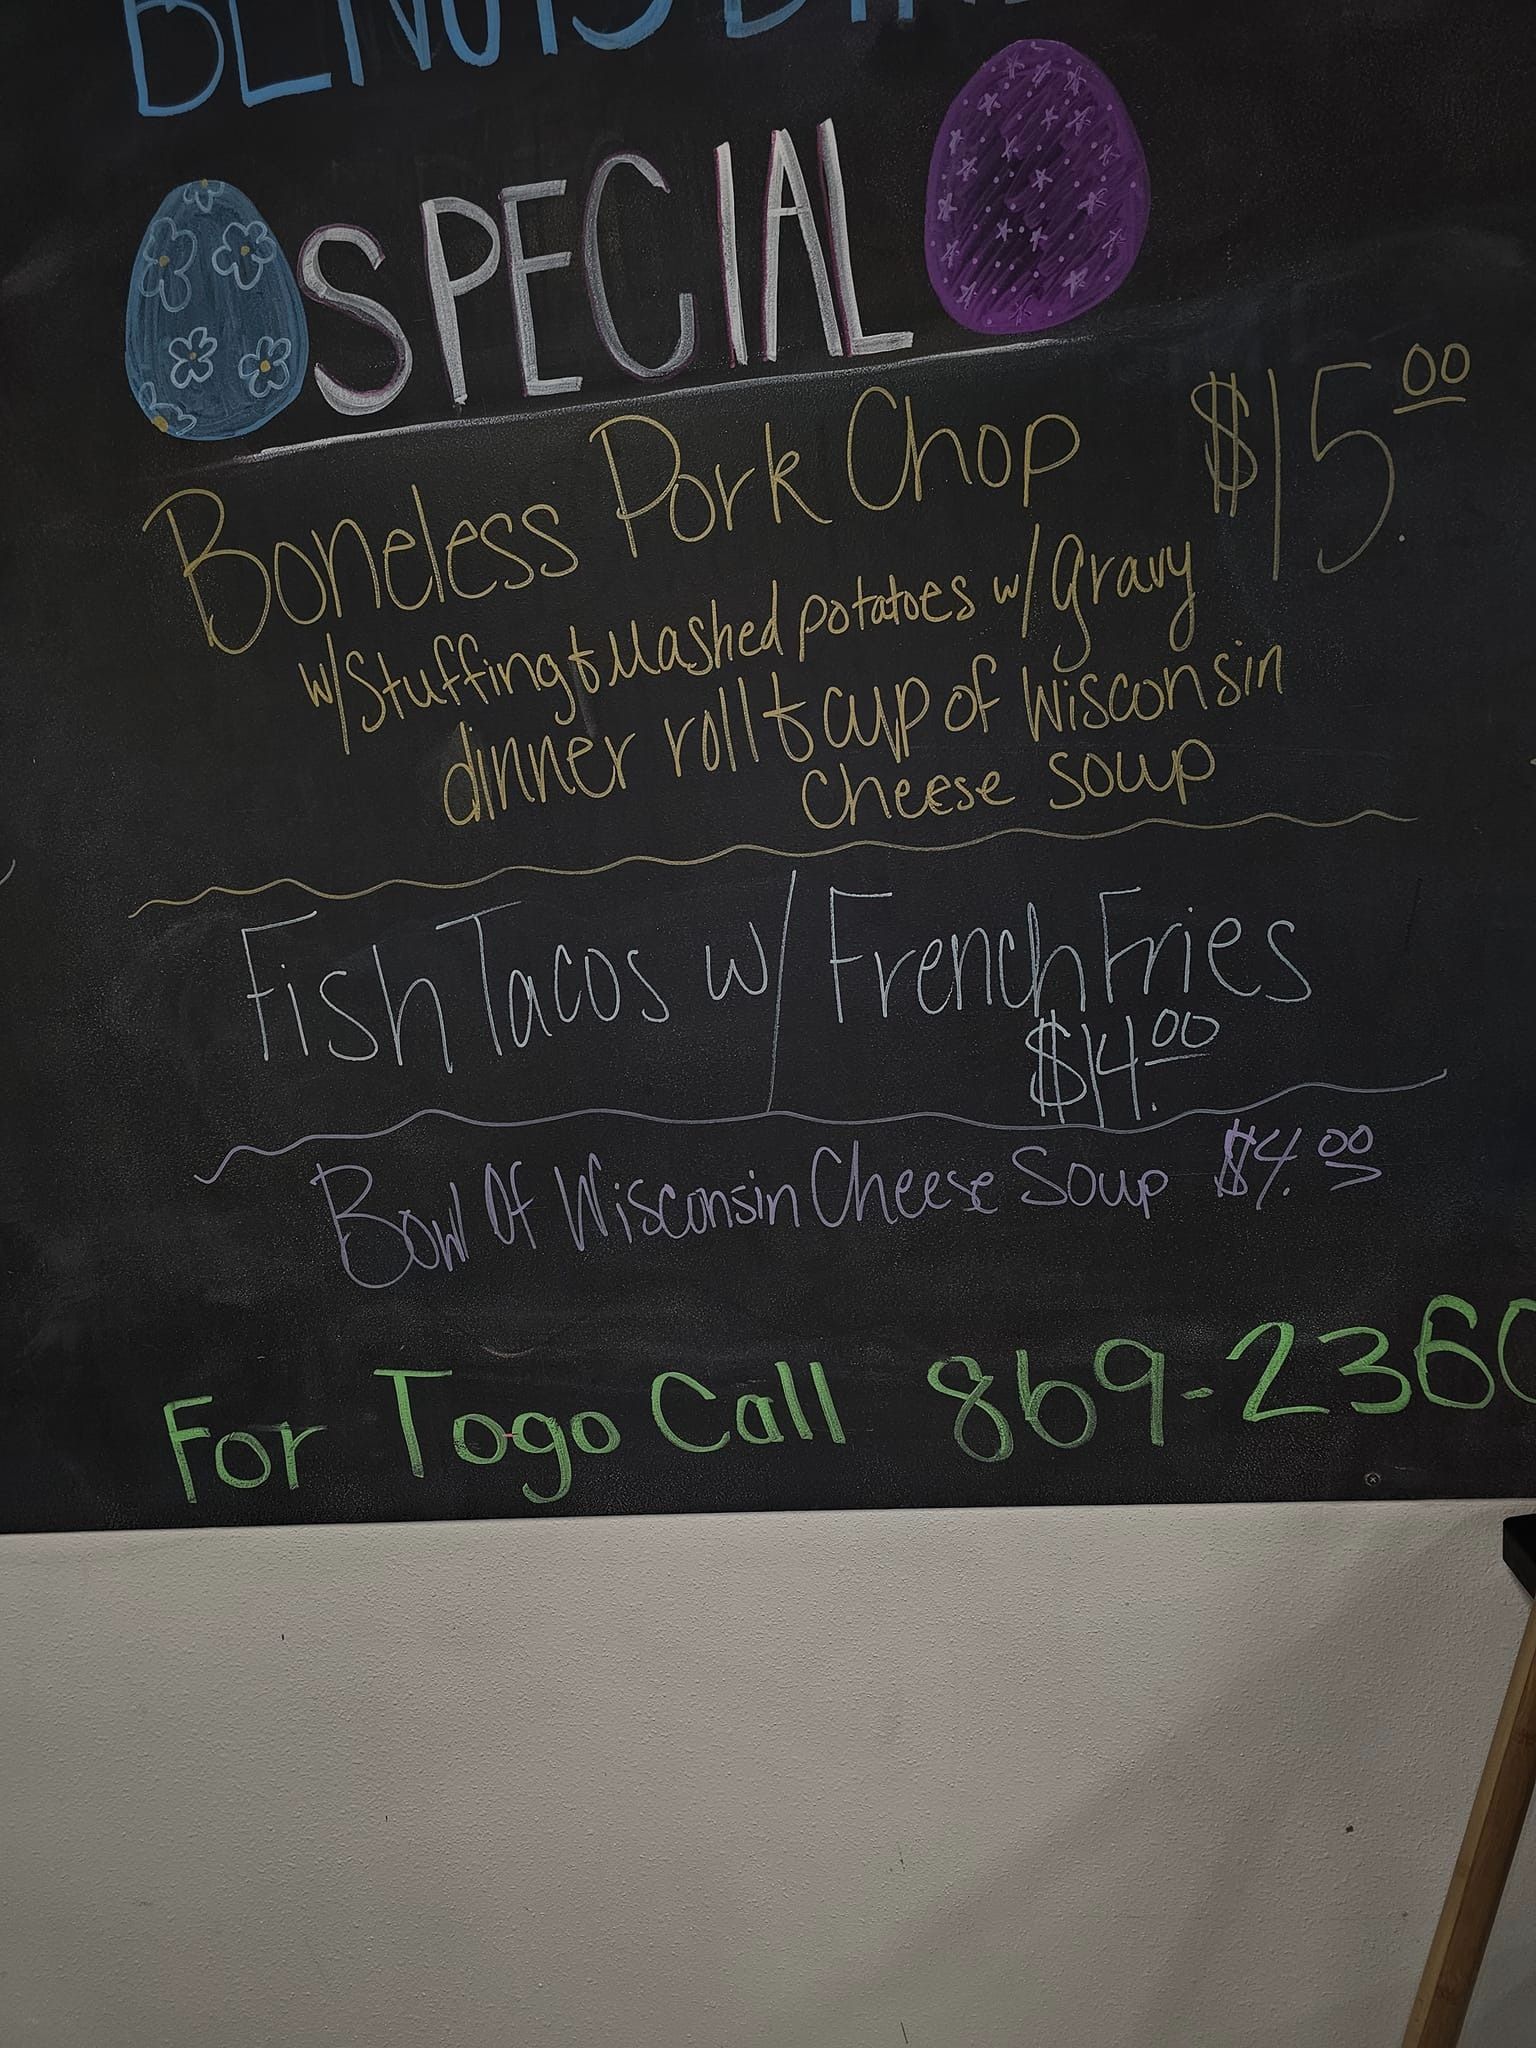 SPECIAL
Boneless Pork Chop $15.00
w/Stuffing & Mashed potatoes w/ gravy
dinner roll & cup of Wisconsin
Cheese soup
Fish Tacos w/ French Fries
$14.00
Bowl Of Wisconsin Cheese Soup $4.00
For Togo Call 869-2360